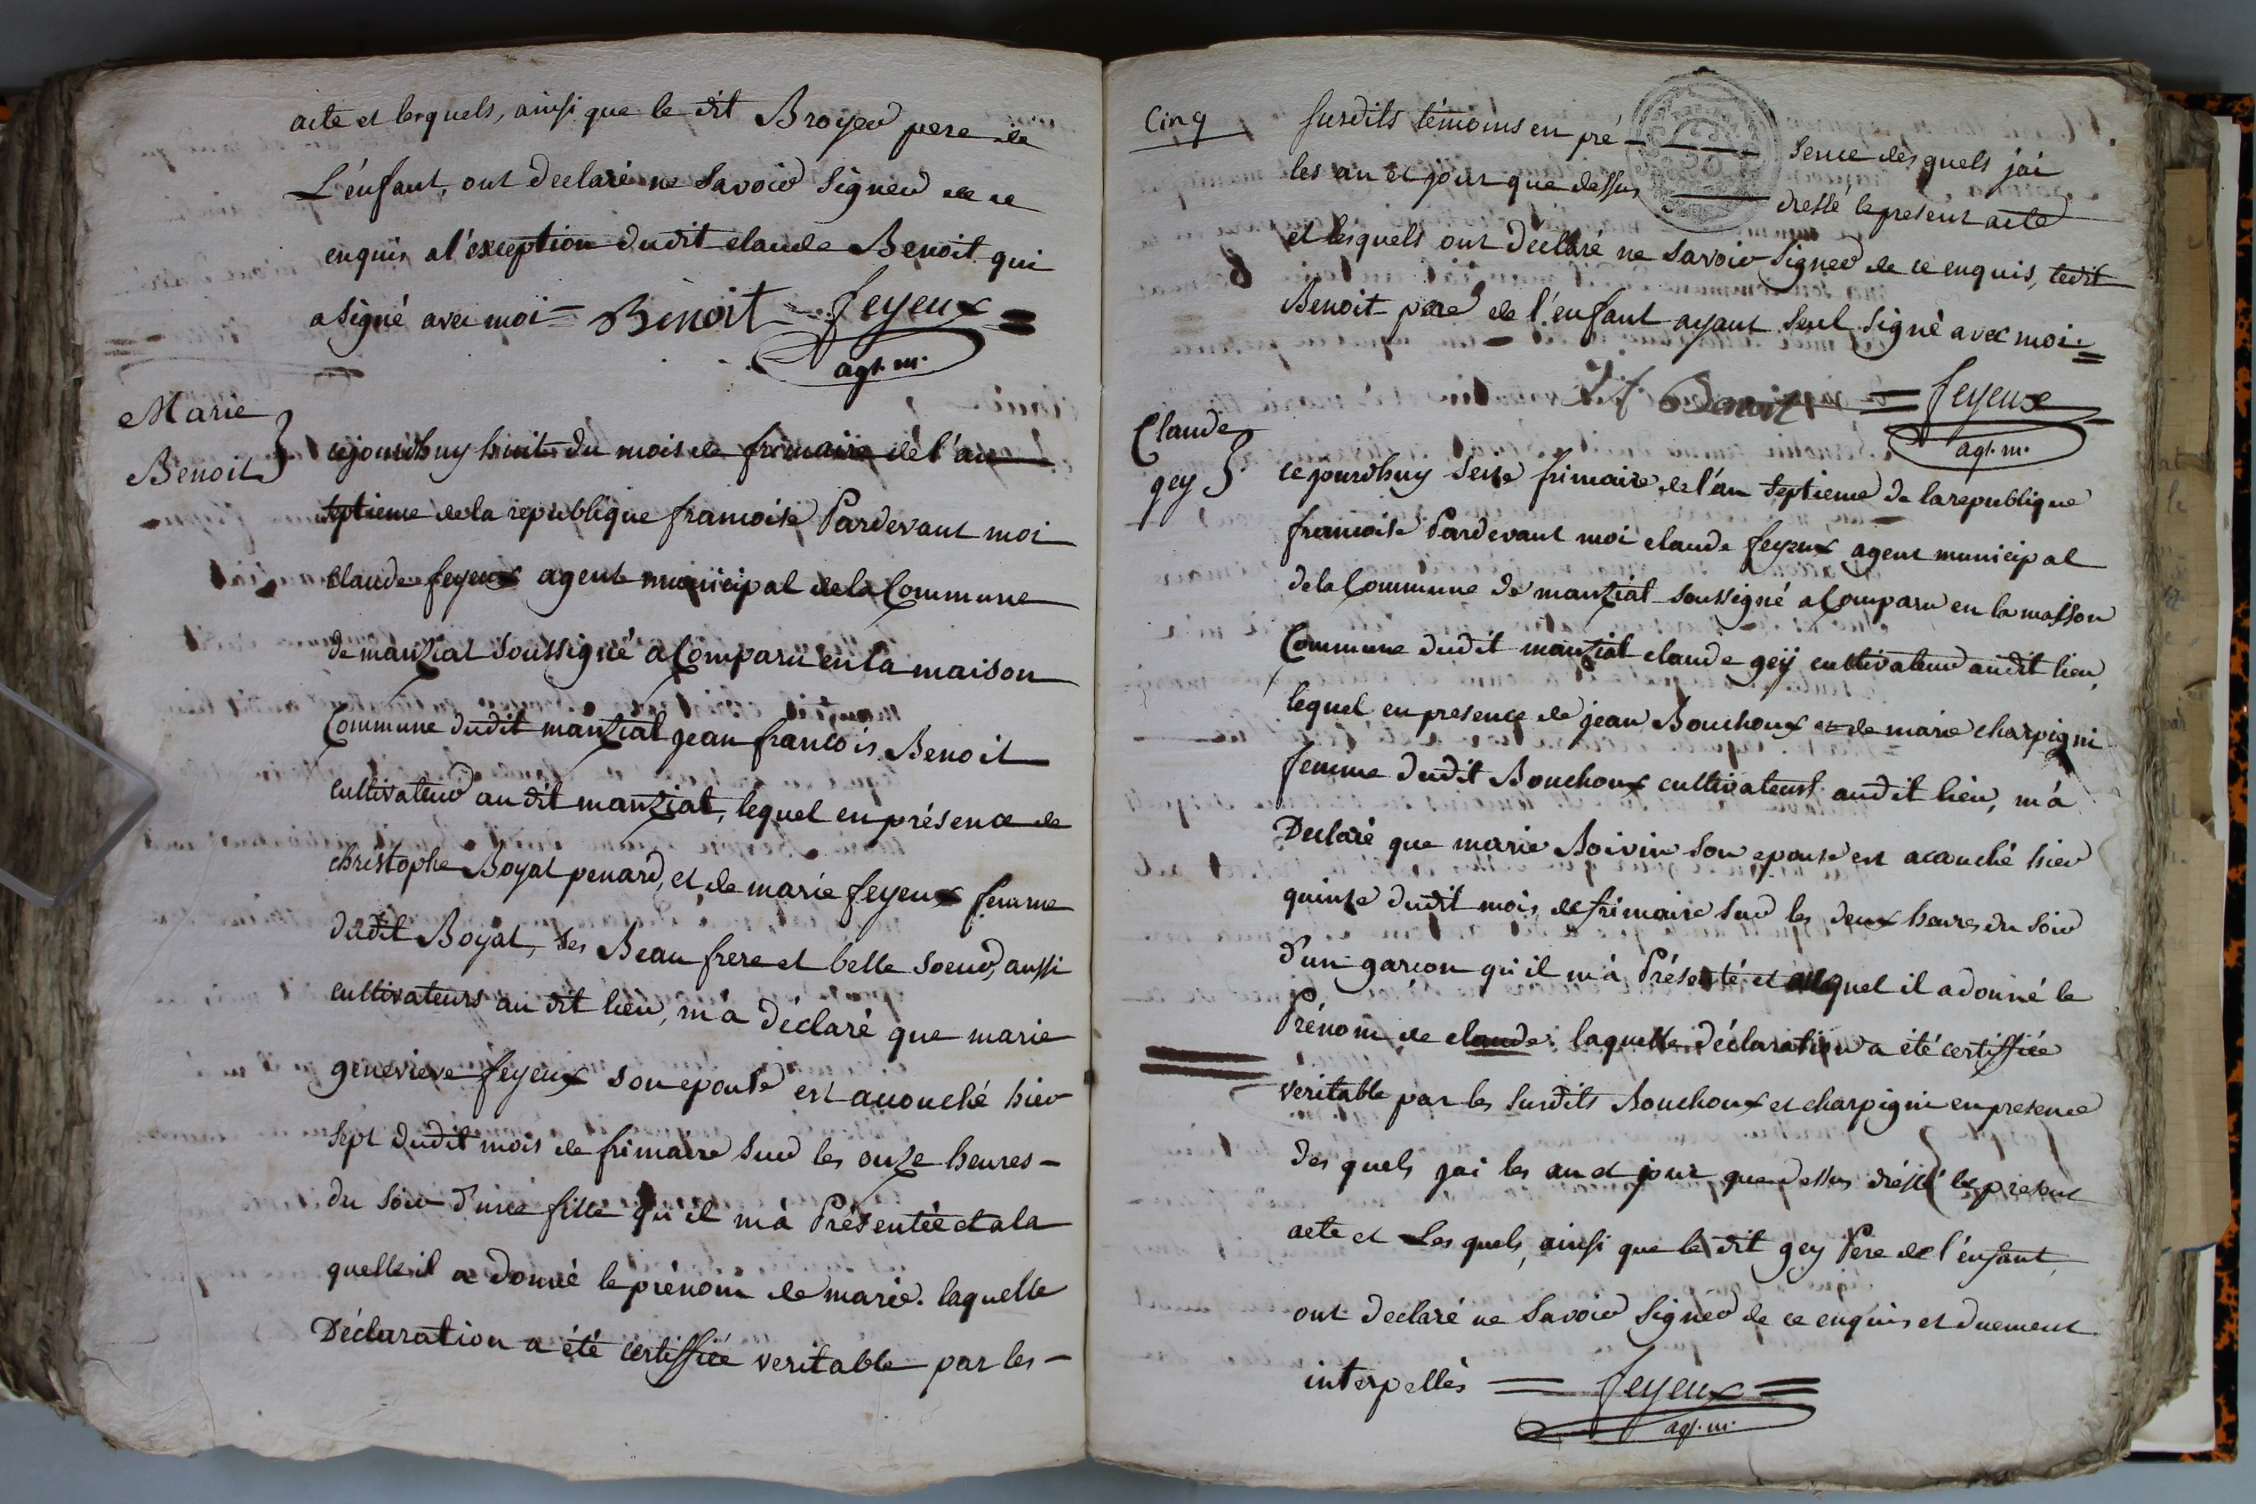 acte et lesquels, ainsi que le dit Broyer pere de
L'énfant, ont declaré ne savoir signer de ce
enquis a l'exception dudit claude Benoit qui
a signé avec moi = Benoit feyeux =
agt. m.
Marie
Benoit
cejourdhuy huit du mois de frimaire de l'an
septieme de la republique francoise Pardevant moi
claude feyeux agent municipal de la Commune
de manziat soussigné a Comparu en la maison
Commune dudit manziat jean francois Benoit
cultivateur au dit manziat, lequel en présence de
christophe Boyat penard, et de marie feyeux femme
dudit Boyat, ses Beau frere et belle soeur, aussi
cultivateurs au dit lieu, m'a déclaré que marie
genevieve feyeux son epouse est acouché hier
sept dudit mois de frimaire sur les onze heures -
du soir d'une fille qu'il m'a Présentée et a la
quelle il a donné le prénom de marie. laquelle
Déclaration a été certiffiée veritable par les -
Cinq
susdits témoins en pré - sence des quels j'ai
les an et jour que dessus dressé le present acte
et lesquels ont declaré ne savoir signer de ce enquis, ledit
Benoit pere de l'enfant ayant seul signé avec moi =
J. f. Benoit = feyeux
agt. m.
Claude
gey
cejourdhuy seize frimaire de l'an septieme de la republique
francoise Pardevant moi claude feyeux agent municipal
de la Commune de manziat soussigné a Comparu en la maison
Commune dudit manziat claude gey cultivateur audit lieu,
lequel en presence de jean Bouchoux et de marie charpigni
femme dudit Bouchoux cultivateurs audit lieu, m'a
Declaré que marie Boivin son epouse est acouché hier
quinze dudit mois de frimaire sur les deux heures du soir
d'un garcon qu'il m'a Présenté et auquel il a donné le
Prénom de claude. laquelle déclaration a été certiffiée
veritable par les susdits Bouchoux et charpigni en presence
des quels j'ai les an et jour que dessus dréssé le present
acte et Les quels, ainsi que le dit gey Pere de l'enfant,
ont declaré ne savoir signer de ce enquis et duement
interpellés = feyeux =
agt. m.